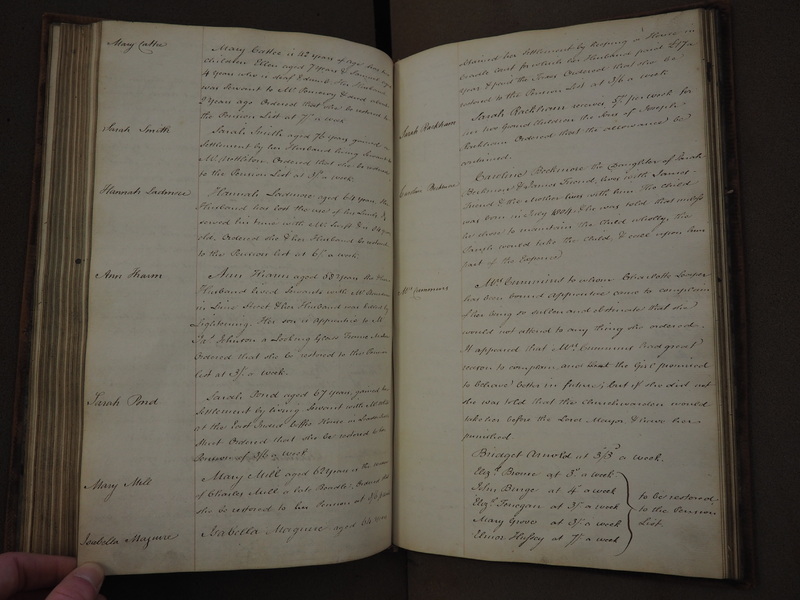 Mary Cattee
Mary Cattee is 42 years of age has two
children Ellen aged 7 years &
4 years who is deaf & dumb. Her Husband
was Servant to Mr Pomeroy & died about
2 years ago Ordered that she be restored to
the Pension List at 7/. a week
Sarah Smith
Sarah Smith aged 76 years gained a
Settlement by her Husband being Servant to
Mr Nettleton. Ordered that she be restored
to the Pension List at 3/. a week
Hannah Ladmore
Hannah Ladmore aged 64 years, Her
Husband has lost the use of his Limbs &
served his time with Mr Swift & is
old. Ordered she & her Husband be restored
to the Pension list at 6/. a week
Ann Hearn
Ann Hearn aged 53 years She & her
Husband lived Servants with Mr
in Lime Street, & her Husband was killed by
Lightening. Her son is apprentice to Mr
Jas. Johnson a Looking Glass Frame Maker
Ordered that she be restored to the Pension
list at 3/. a week.
Sarah Pond
Sarah Pond aged 67 years, gained her
Settlement by living Servant with Mr
at the East India Coffee House in Leadenhall
Street Ordered that she be restored to the
Pension of 3/6 a week
Mary Mill
Mary Mill aged 62 years is the widow
of Charles Mill a late Beadle, Ordered that
she be restored to her Pension at 5/6
Isabella Maguire
Isabella Maguire aged 64 years
obtained her settlement by keeping a House in
Beadle Court for which her Husband paid £17 a
year & paid the Taxes Ordered that she be
restored to the Pension List at 3/6 a week
Sarah Rackham
Sarah Rackham receives 5/. per week for
her two Grand children the Sons of Joseph
Rackham Ordered that the allowance be
continued.
Caroline
Caroline the Daughter of Sarah
& James Friend, lives with James
Friend & the Mother lives with him. The child
was born in July 1804. She was told that unless
he chose to maintain the child wholly, the
Parish would take the child, & call upon him
part of the Expence
Mrs Cummins
Mrs Cummins to whom Charlotte Looper
has been bound Apprentice came to complain
of her being so sullen and obstinate that she
would not attend to any thing she ordered.
It appeared that Mrs Cummins had great
reason to complain and that the Girl promised
to behave better in future, but if she did not
she was told that the Churchwarden would
take her before the Lord Mayor & have her
punished.
Bridget Arnold at 3/3 a week.
Elizh Browne at 3/. a week
John Burge at 4/. a week
Elizh Finegan at 3/. a week
Mary Groves at 3/. a week
Elinor Hussey at 7/. a week
to be restored
to the Pension
List.